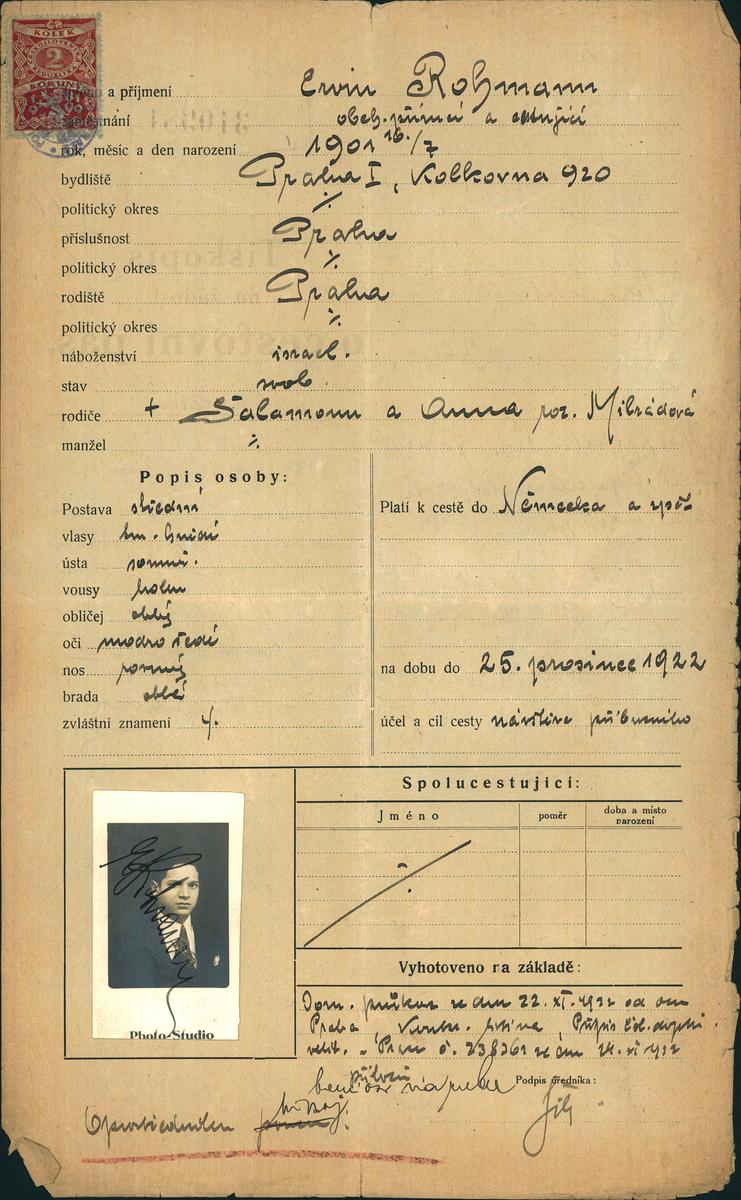 KOLEK
ČESKOSLOVENSKÁ
REPUBLIKA
2
KORUNY
a příjmení Ervin Rohmann
zaměstnání obch. a cestující
rok, měsíc a den narození 1901 16./7
bydliště Praha I, Kolkovna 920
politický okres ./.
příslušnost Praha
politický okres ./.
rodiště Praha
politický okres ./.
náboženství israel.
stav svob.
rodiče + Salamoun a Anna roz.
manžel ./.
Popis osoby:
Postava střední
vlasy tm. hnědé
ústa souměr.
vousy holen
obličej oblý
oči modrošedé
nos rovný
brada oblá
zvláštní znamení
Platí k cestě do Německa a zpět
na dobu do 25. prosince 1922
účel a cíl cesty návštěva příbuzného
Spolucestující:
Jméno
poměr
doba a místo narození
Photo-Studio
Vyhotoveno na základě:
Dom. průkaz ze dne 22. XI. 1922 od
Praha
velit. Praha č. ze dne
Podpis úředníka: